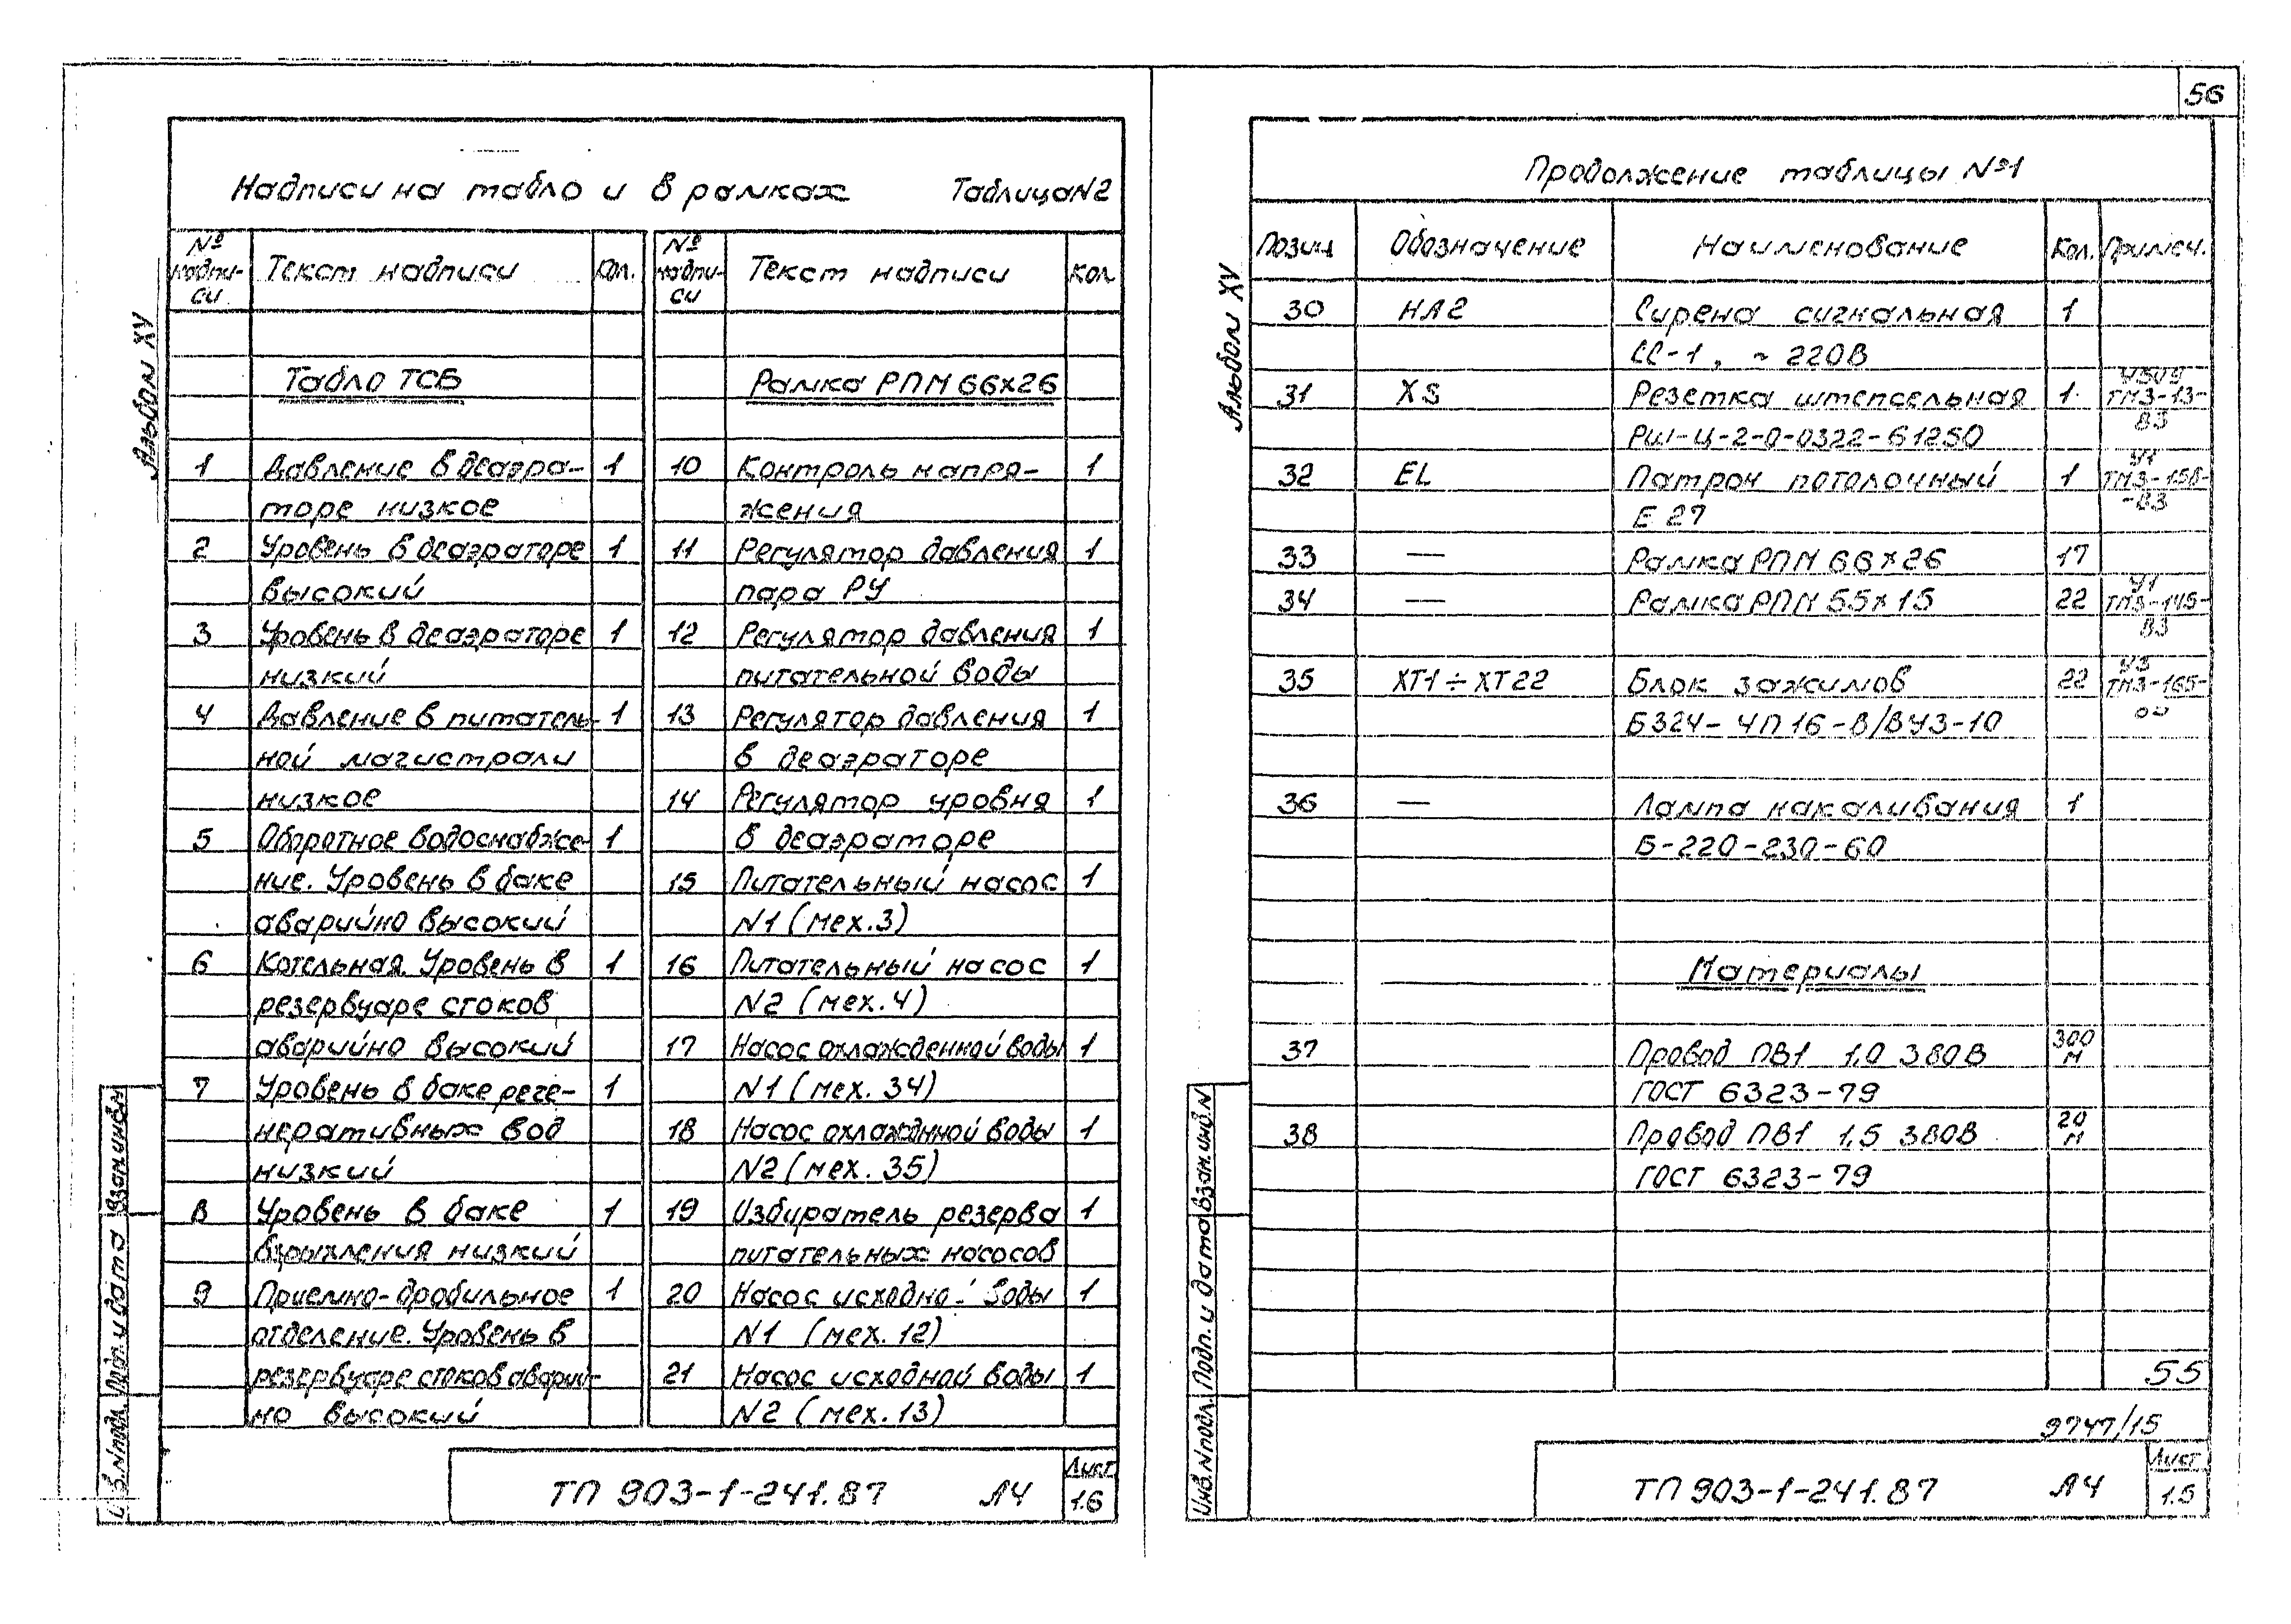 56
Надписи на табло и в рамках Таблица N2
№ надпи-си Текст надписи Кол. № надпи-си Текст надписи Кол
Табло ТСБ
1 Давление в деаэра- 1
торе низкое
2 Уровень в деаэраторе 1
высокий
3 Уровень в деаэраторе 1
низкий
4 Давление в питатель- 1
ной магистрали
низкое
5 Оборотное водоснабже- 1
ние. Уровень в баке
аварийно высокий
6 Котельная. Уровень в 1
резервуаре стоков
аварийно высокий
7 Уровень в баке реге- 1
неративных вод
низкий
8 Уровень в баке 1
взрыхления низкий
9 Приемно-дробильное 1
отделение. Уровень в
резервуаре стоков аварий-
но высокий
Рамка РПМ 66х26
10 Контроль напря- 1
жения
11 Регулятор давления 1
пара РУ
12 Регулятор давления 1
питательной воды
13 Регулятор давления 1
в деаэраторе
14 Регулятор уровня 1
в деаэраторе
15 Питательный насос 1
N1 (мех.3)
16 Питательный насос 1
N2 (мех.4)
17 Насос охлажденной воды 1
N1 (мех. 34)
18 Насос охлажднной воды 1
N2 (мех. 35)
19 Избиратель резерва 1
питательных насосов
20 Насос исходной воды 1
N1 (мех. 12)
21 Насос исходной воды 1
N2 (мех. 13)
ТП 903-1-241.87 Л4 Лист
1.6
Альбом XV
Подп. и дата Взам.инв.N
Продолжение таблицы №1
Позиц Обозначение Наименование Кол. Примеч.
30 НА2 Сирена сигнальная 1
СС-1, ~ 220В
31 XS Розетка штепсельная 1 ТМ3-13-
РШ-Ц-2-0-0322-61250 ВЗ
32 EL Патрон потолочный 1 У1 ТМ3-158-
Е 27 -ВЗ
33 — Рамка РПМ 66х26 17
34 — Рамка РПМ 55х15 22 У1 ТМ3-145-
ВЗ
35 ХТ1÷ХТ22 Блок зажимов 22 У3 ТМ3-165-
БЗ24-4П16-В/ВУЗ-10
36 — Лампа накаливания 1
Б-220-230-60
Материалы
37 Провод ПВ1 1,0 380В 300 м
ГОСТ 6323-79
38 Провод ПВ1 1,5 380В 20 м
ГОСТ 6323-79
55
9747/15
ТП 903-1-241.87 Л4 Лист
1.5
Альбом XV
Инв.N подл. Подп. и дата Взам.инв.N